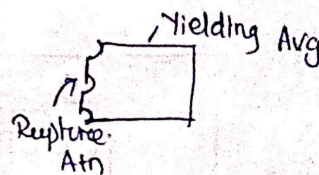 Yielding Avg
Rupture.
Atn